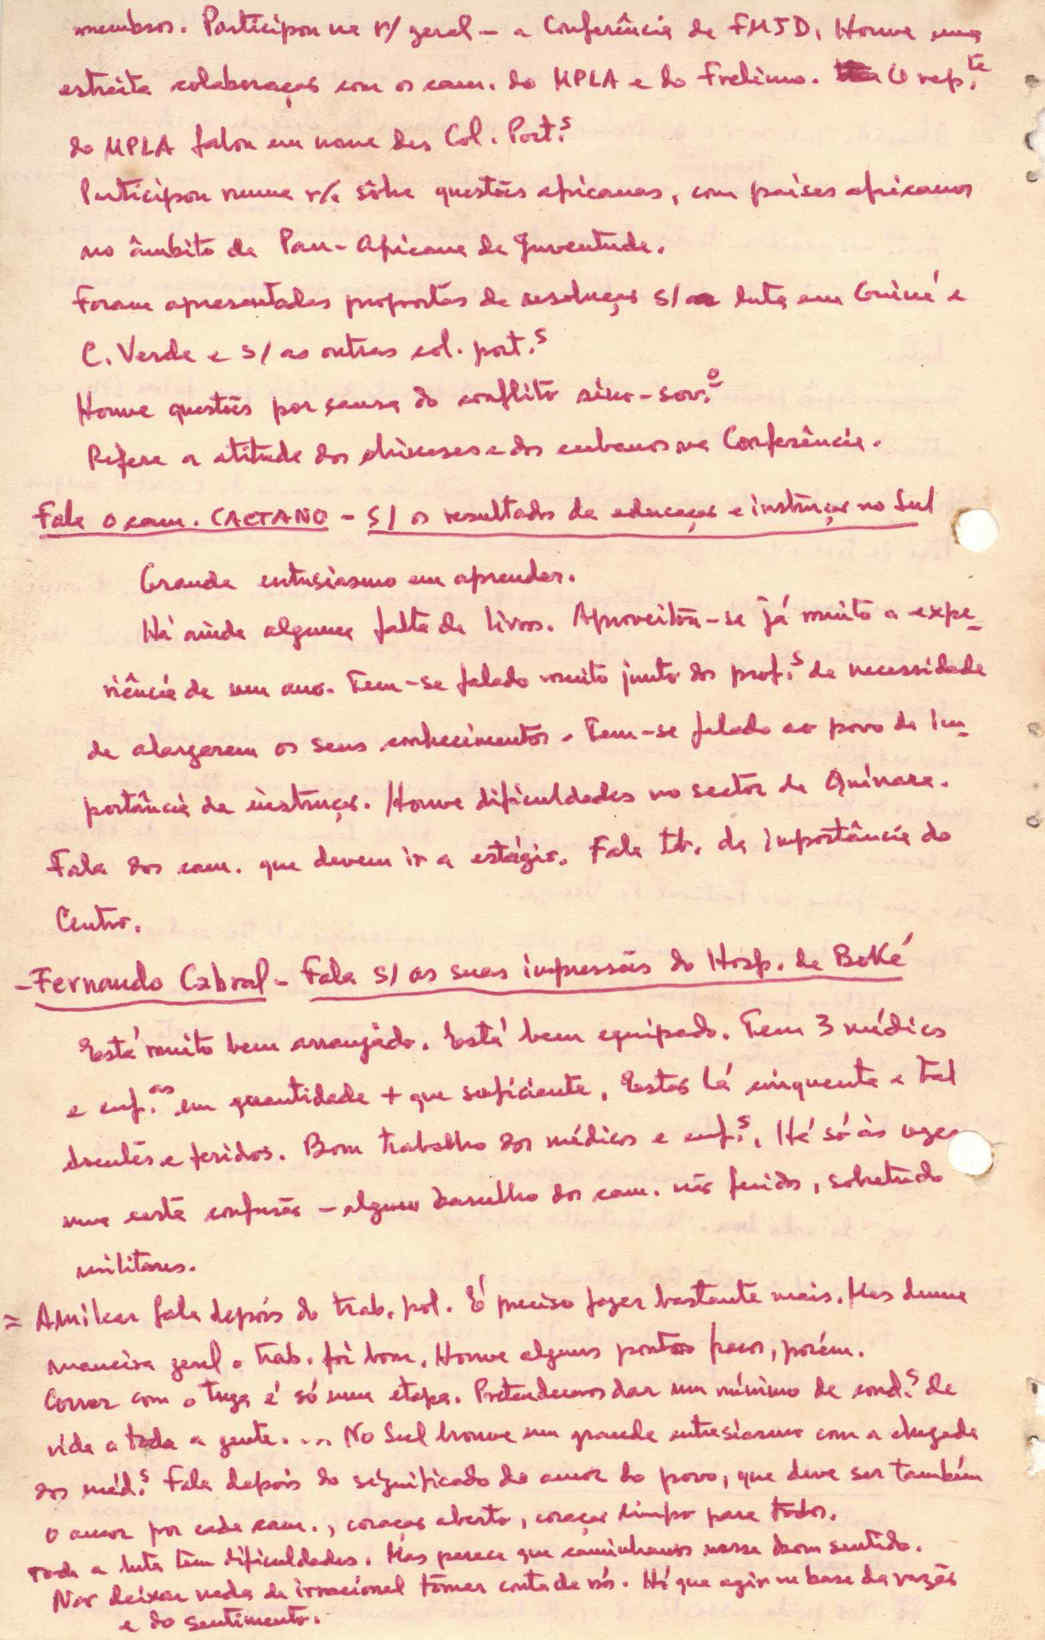 membros. Participou na r/ geral - a Conferência da FMJD. Houve uma
estreita colaboração com os cam. do MPLA e da Frelimo. O rep.te
do MPLA falou em nome das Col. Port.s
Participou numa r/. sôbre questões africanas, com países africanos
no âmbito da Pan-Africana da Juventude.
Foram apresentadas propostas de resolução s/ a luta em Guiné e
C. Verde e s/ as outras col. port.s
Houve questões por causa do conflito sino-sov.o
Refere a atitude dos chineses e dos cubanos na Conferência.
Fala o cam. CAETANO - S/ os resultados da educação e instrução no Sul
Grande entusiasmo em aprender.
Há ainda alguma falta de livros. Aproveitou-se já muito a expe-
riência de um ano. Tem-se falado muito junto dos prof.s da necessidade
de alargarem os seus conhecimentos. Tem-se falado ao povo da im-
portância da instrução. Houve dificuldades no sector de Quínara.
Fala dos cam. que devem ir a estágio. Fala tb. da importância do
Centro.
- Fernando Cabral - Fala s/ as suas impressões do Hosp. de Boké
Está muito bem arranjado. Está bem equipado. Tem 3 médicos
e enf.as em quantidade + que suficiente. Estão lá cinquenta e tal
doentes e feridos. Bom trabalho dos médicos e enf.s. Há só às vezes
uma certa confusão - algum barulho dos cam. não feridos, sobretudo
militares.
= Amilcar fala depois do trab. pol. É preciso fazer bastante mais. Mas duma
maneira geral o trab. foi bom. Houve alguns pontos fracos, porém.
Correr com o tuga é só uma etapa. Pretendemos dar um mínimo de cond.s de
vida a toda a gente. ... No Sul houve um grande entusiasmo com a chegada
dos méd.s Fala depois do significado do amor do povo, que deve ser também
o amor por cada cam., coração aberto, coração limpo para todos.
Toda a luta tem dificuldades. Mas parece que caminhamos nesse bom sentido.
Não deixar nada de irracional tomar conta de nós. Há que agir na base da razão
e do sentimento.